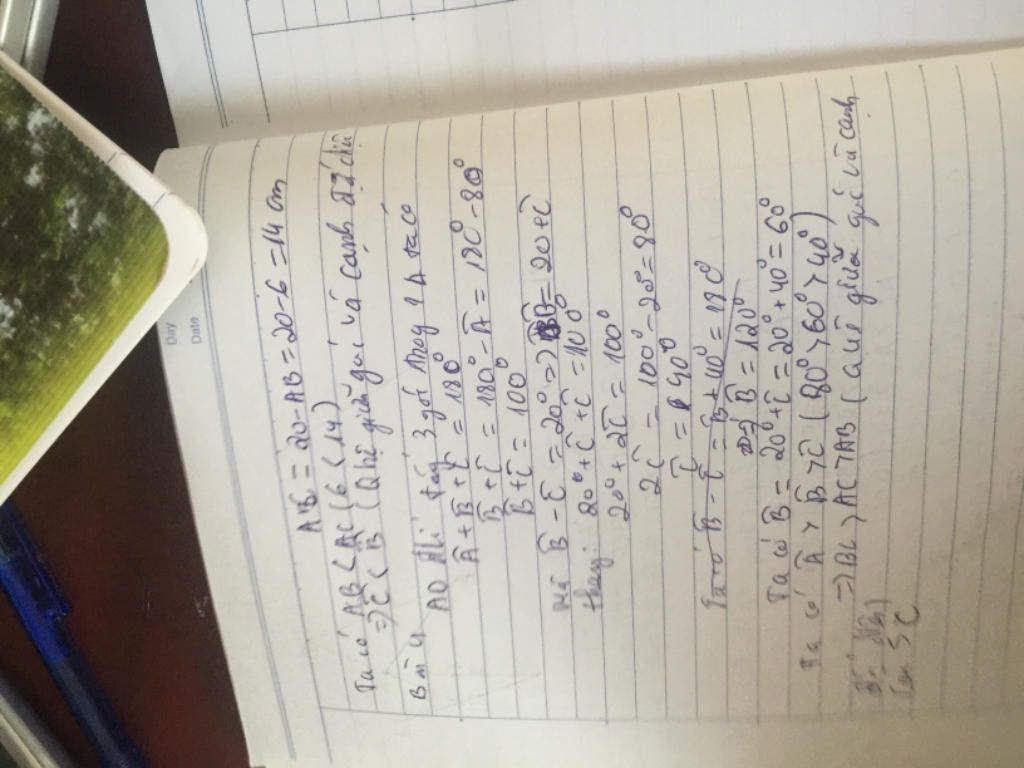 Day
Date
AB = 20 - AB = 20 - 6 = 14 cm
Ta có AB < AC (6 < 14)
=> Ĉ < B̂ (Qhệ giữa góc và cạnh đối diện
Bài 4
AD ĐLí tổng 3 góc trong 1 Δ ta có
Â + B̂ + Ĉ = 180°
B̂ + Ĉ = 180° - Â = 180° - 80°
B̂ + Ĉ = 100°
Mà B̂ - Ĉ = 20° => B̂ = 20 + Ĉ
thay: 20° + Ĉ + Ĉ = 100°
20° + 2Ĉ = 100°
2Ĉ = 100° - 20° = 80°
Ĉ = 40°
Ta có B̂ - Ĉ = B + 40° = 190°
=> B̂ = 120°
Ta có B̂ = 20° + Ĉ = 20° + 40° = 60°
Ta có Â > B̂ > Ĉ (80° > 60° > 40°)
=> BC > AC > AB (giữa góc và cạnh
5C